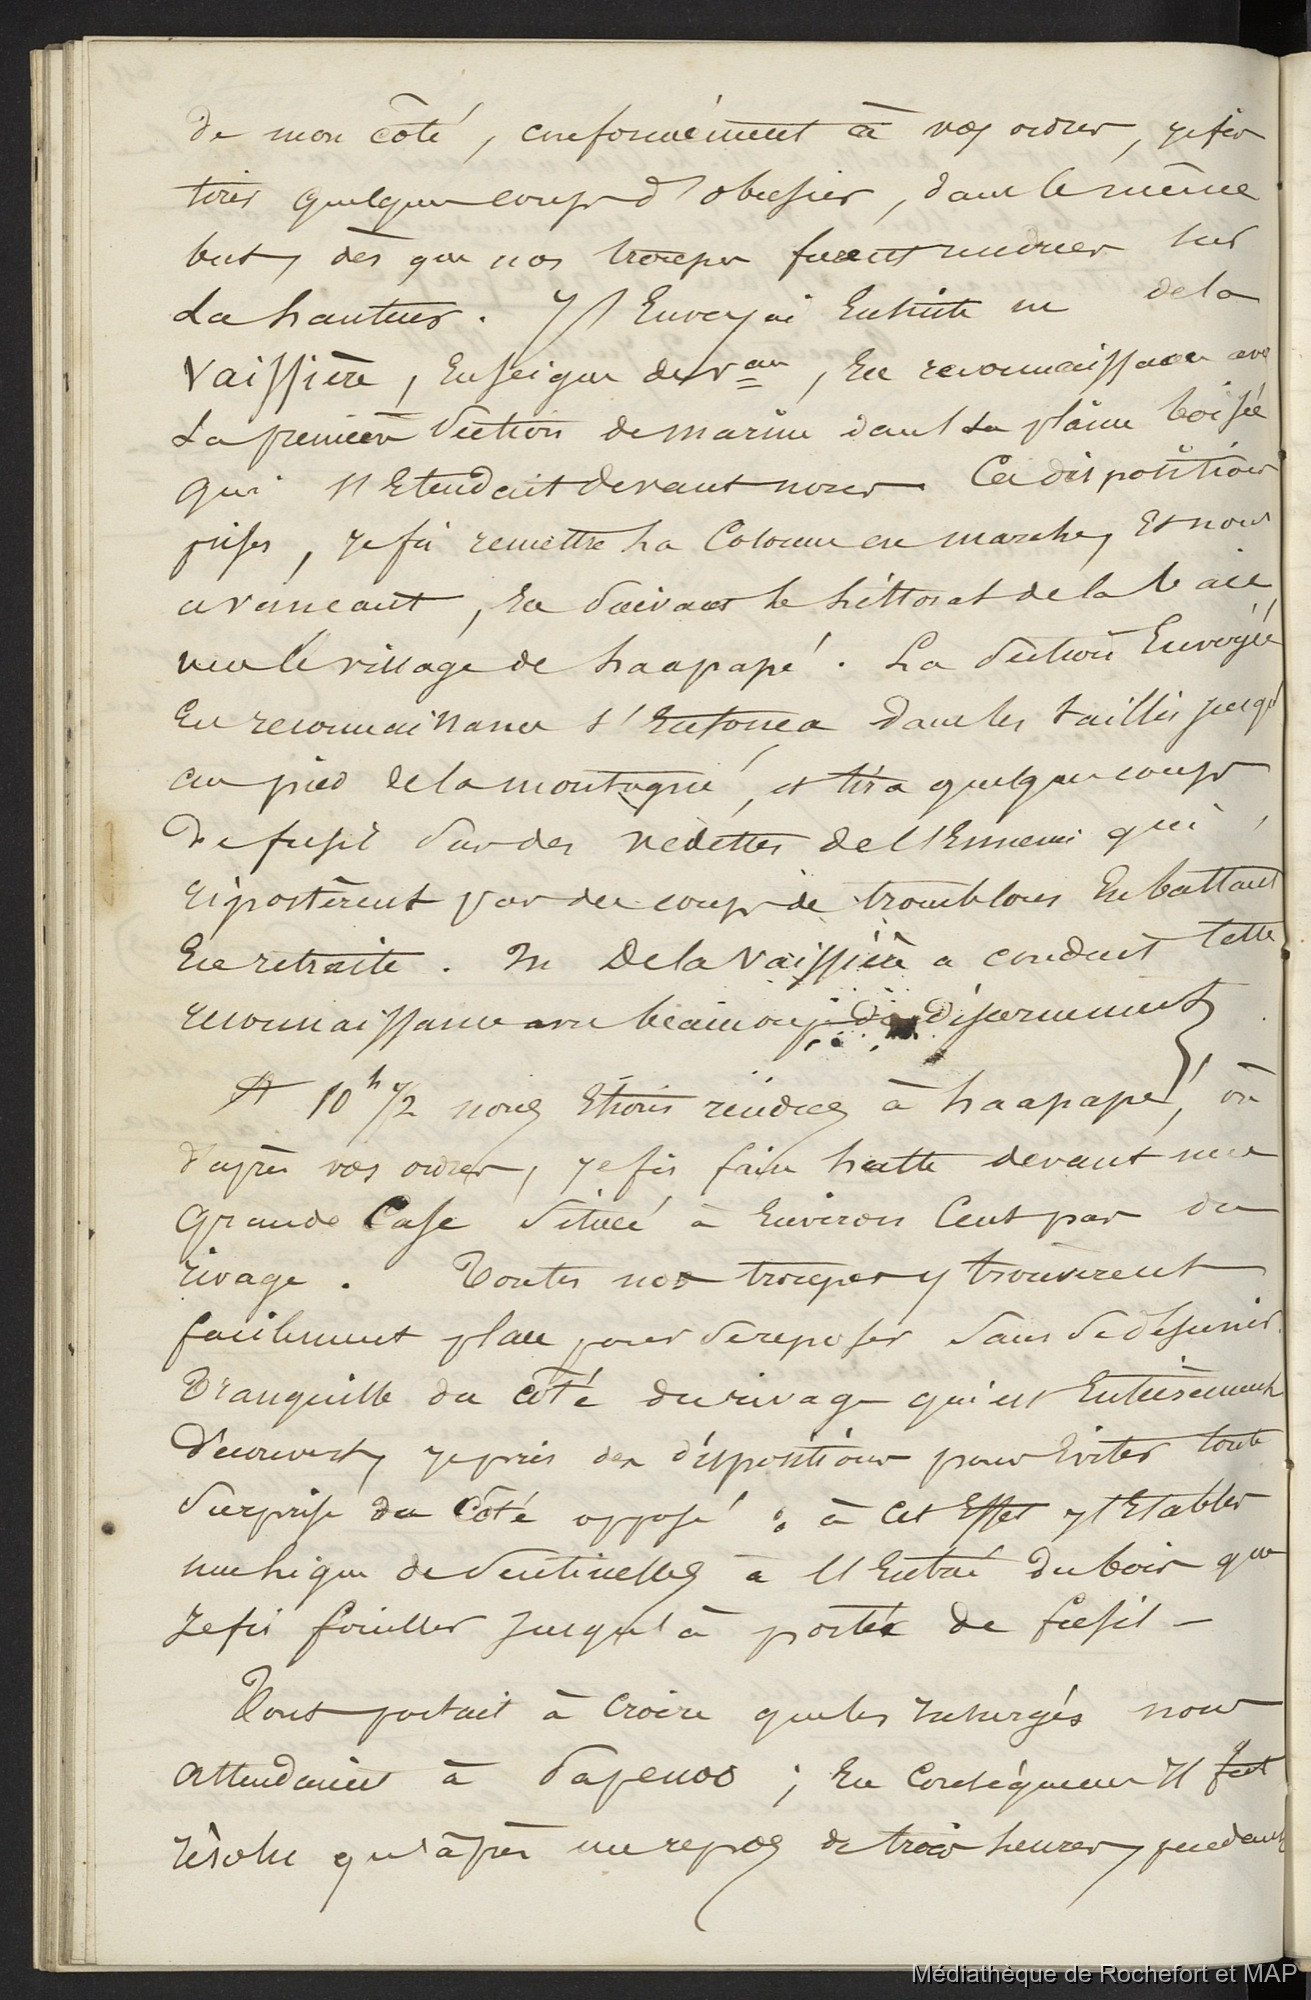 de mon côté, conformément à vos ordres, je fis
tirer quelques coups d'obusier, dans le même
but, dès que nos troupes furent rendues sur
la hauteur. J'Envoyai Ensuite m de la
Vaissière, Enseigne de Vau, En reconnaissance avec
La première Section de marins dans La plaine boisée
qui s'Etendait devant nous. Ces dispositions
prises, je fis remettre la Colonne en marche, Et nous
avancant, En Suivant le littoral de la baie,
vers le village de haapapé. La Section Envoyée
En reconnaissance s'Enfonca dans les taillis jusqu'
au pied de la montagne, et tira quelques coups
de fusil Sur des vedettes de l'Ennemi qui,
ripostèrent par des coups de tromblons En battant
En retraite. M De la Vaissière a conduit cette
reconnaissance avec beaucoup de discernement,
A 10h 1/2 nous Etions rendus à haapapé, où
d'après vos ordres, je fis faire halte devant une
Grande Case Située à Environ Cent pas du
rivage. Toutes nos troupes y trouvèrent
facilement place pour Se reposer Sans Se désunir.
Tranquille du côté du rivage qui est Entièrement
découvert, je pris des dispositions pour Eviter toute
Surprise du Côté opposé : à Cet Effet j'Etablis
une ligne de Sentinelles à l'Entrée du bois que
Je fis fouiller Jusqu'à portée de fusil —
Tout portait à Croire que les Insurgés nous
attendaient à Papenoo ; En Conséquence Il fut
résolu qu'après un repos de trois heures, pendant
Médiathèque de Rochefort et MAP